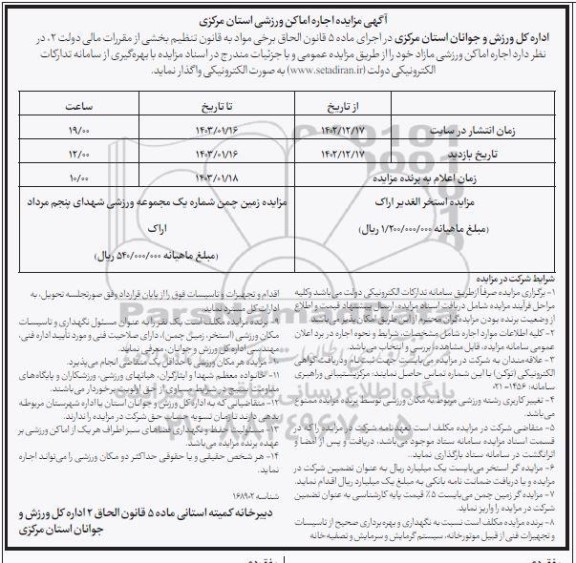 آگهی مزایده اجاره اماکن ورزشی استان مرکزی
اداره کل ورزش و جوانان استان مرکزی در اجرای ماده ۵ قانون الحاق برخی مواد به قانون تنظیم بخشی از مقررات مالی دولت ۲، در
نظر دارد اجاره اماکن ورزشی مازاد خود را از طریق مزایده عمومی و با جزئیات مندرج در اسناد مزایده با بهره‌گیری از سامانه تدارکات
الکترونیکی دولت (www.setadiran.ir) به صورت الکترونیکی واگذار نماید.
از تاریخ تا تاریخ ساعت
زمان انتشار در سایت ۱۴۰۲/۱۲/۱۷ ۱۴۰۳/۰۱/۱۶ ۱۹/۰۰
تاریخ بازدید ۱۴۰۲/۱۲/۱۷ ۱۴۰۳/۰۱/۱۶ ۱۲/۰۰
زمان اعلام به برنده مزایده ۱۴۰۳/۰۱/۱۸ ۱۰/۰۰
مزایده استخر الغدیر اراک
(مبلغ ماهیانه ۱/۲۰۰/۰۰۰/۰۰۰ ریال)
مزایده زمین چمن شماره یک مجموعه ورزشی شهدای پنجم مرداد
اراک
(مبلغ ماهیانه ۵۴۰/۰۰۰/۰۰۰ ریال)
شرایط شرکت در مزایده
۱- برگزاری مزایده صرفاً از طریق سامانه تدارکات الکترونیکی دولت می باشد و کلیه
مراحل فرآیند مزایده شامل دریافت اسناد مزایده، ارسال پیشنهاد قیمت و اطلاع
از وضعیت برنده بودن مزایده‌گران محترم از این طریق امکان پذیر می باشد.
۲- کلیه اطلاعات موارد اجاره شامل مشخصات، شرایط و نحوه اجاره در برد اعلان
عمومی سامانه مزایده، قابل مشاهده، بررسی و انتخاب می‌باشد.
۳- علاقه‌مندان به شرکت در مزایده می‌بایست جهت ثبت نام و دریافت گواهی
الکترونیکی (توکن) با این شماره تماس حاصل نمایند: مرکز پشتیبانی و راهبری
سامانه: ۱۴۵۶-۰۲۱
۴- تغییر کاربری رشته ورزشی مربوط به مکان ورزشی توسط برنده مزایده ممنوع
می‌باشد.
۵- متقاضی شرکت در مزایده مکلف است تعهدنامه شرکت در مزایده را که در
قسمت اسناد مزایده سامانه ستاد موجود می‌باشد، دریافت و پس از امضا و
اثرانگشت در سامانه ستاد بارگذاری نماید.
۶- مزایده گر استخر می‌بایست یک میلیارد ریال به عنوان تضمین شرکت در
مزایده و یا دریافت ضمانت نامه بانکی به مبلغ یک میلیارد ریال اقدام نماید.
۷- مزایده گر زمین چمن می‌بایست ۵٪ قیمت پایه کارشناسی به عنوان تضمین
شرکت در مزایده را واریز نماید.
۸- برنده مزایده مکلف است نسبت به نگهداری و بهره‌برداری صحیح از تاسیسات
و تجهیزات فنی از قبیل موتورخانه، سیستم گرمایش و سرمایش و تصفیه خانه
اقدام و تجهیزات و تاسیسات فوق را از پایان قرارداد وفق صورتجلسه تحویل، به
ادارات کل مسترد نماید.
۹- برنده مزایده مکلف است یک نفر را به عنوان مسئول نگهداری و تاسیسات
مکان ورزشی (استخر، زمین چمن)، دارای صلاحیت فنی و مورد تأیید اداره فنی،
مهندسی اداره کل ورزش و جوانان، معرفی نماید.
۱۰- مزایده هر مکان ورزشی با حداقل یک متقاضی انجام می‌پذیرد.
۱۱- خانواده معظم شهدا و ایثارگران، هیاتهای ورزشی، ورزشکاران و پایگاه‌های
مقاومت بسیج در شرایط مساوی از حق اولویت برخوردار می‌باشند.
۱۲- متقاضیانی که به اداره کل ورزش و جوانان استان یا اداره شهرستان مربوطه
بدهی دارند تا زمان تسویه حساب حق شرکت در مزایده را ندارند.
۱۳- مسئولیت حفظ و نگهداری فضاهای سبز اطراف هر یک از اماکن ورزشی بر
عهده برنده مزایده می‌باشد.
۱۴- هر شخص حقیقی و یا حقوقی حداکثر دو مکان ورزشی را می‌تواند اجاره
نماید.
شناسه ۱۶۸۹۱۰۲
دبیرخانه کمیته استانی ماده ۵ قانون الحاق ۲ اداره کل ورزش و
جوانان استان مرکزی